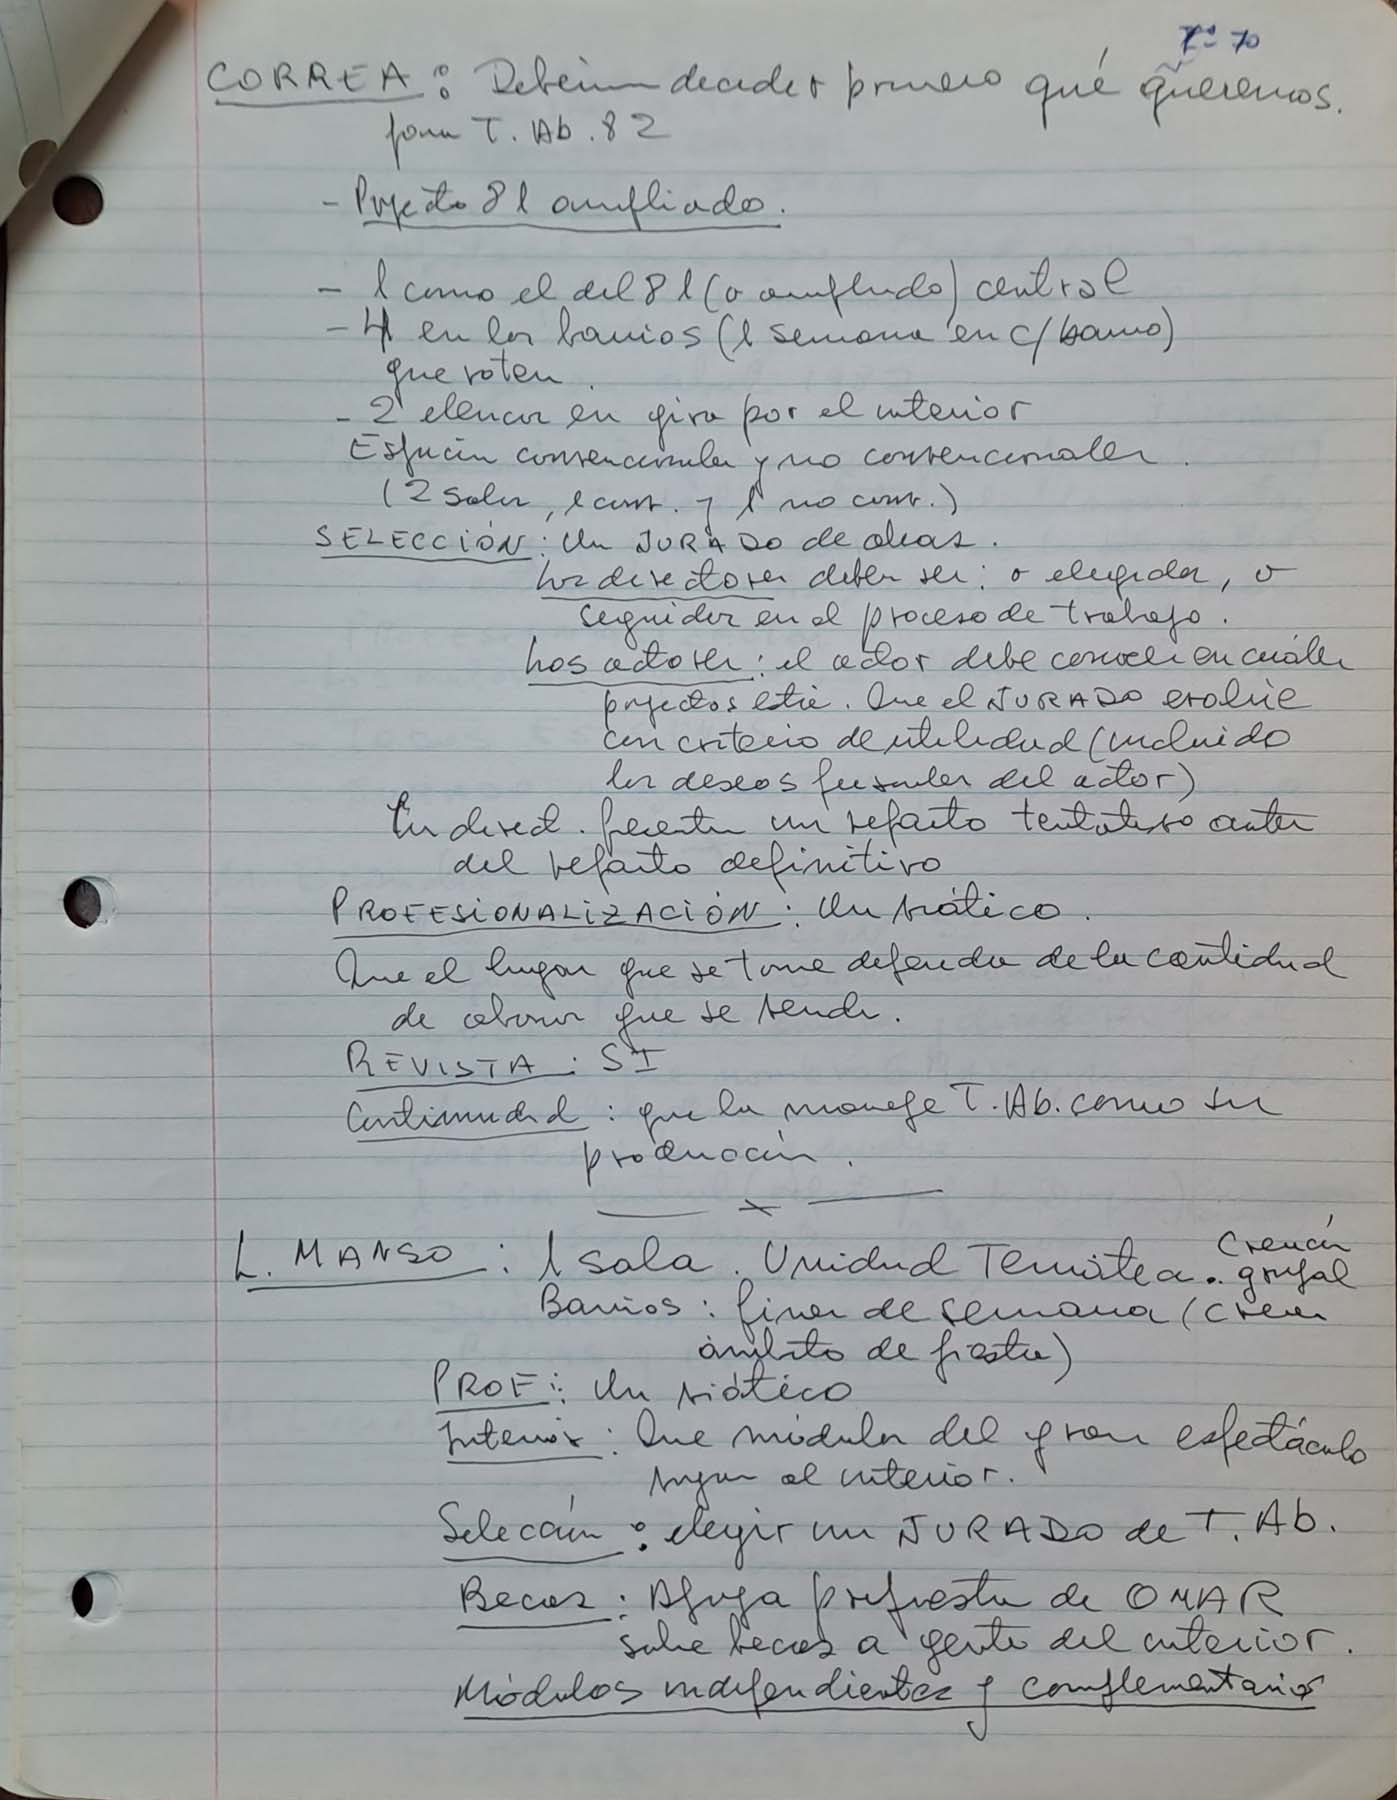 70
CORREA: Debemos decidir primero qué queremos.
para T. Ab. 82
- Proyecto 81 ampliado.
- 1 como el del 81 (o ampliado) central
- 4 en los barrios (1 semana en c/barrio)
que roten.
- 2 elencos en gira por el interior
Espacios convencionales y no convencionales.
(2 salas, 1 conv. y 1 no conv.)
SELECCIÓN: Un JURADO de obras.
Los directores deben ser: o elegidos, o
seguidos en el proceso de trabajo.
Los actores: el actor debe conocer en cuáles
proyectos está. Que el JURADO evalúe
con criterio de utilidad (incluido
los deseos personales del actor)
direct. presenten un reparto tentativo antes
del reparto definitivo
PROFESIONALIZACIÓN: Un viático.
Que el lugar que se tome dependa de la cantidad
de abonos que se venda.
REVISTA: SI
Continuidad: que la maneje T. Ab. como su
producción.
x
L. MANSO: 1 sala. Unidad Temática. Creación
grupal
Barrios: fines de semana (crear
ámbito de fiesta)
PROF: Un viático
Interior: Que módulos del gran espectáculo
vayan al interior.
Selección: elegir un JURADO de T. Ab.
Becas: Apoya propuesta de OMAR
sobre becas a gente del interior.
Módulos independientes y complementarios